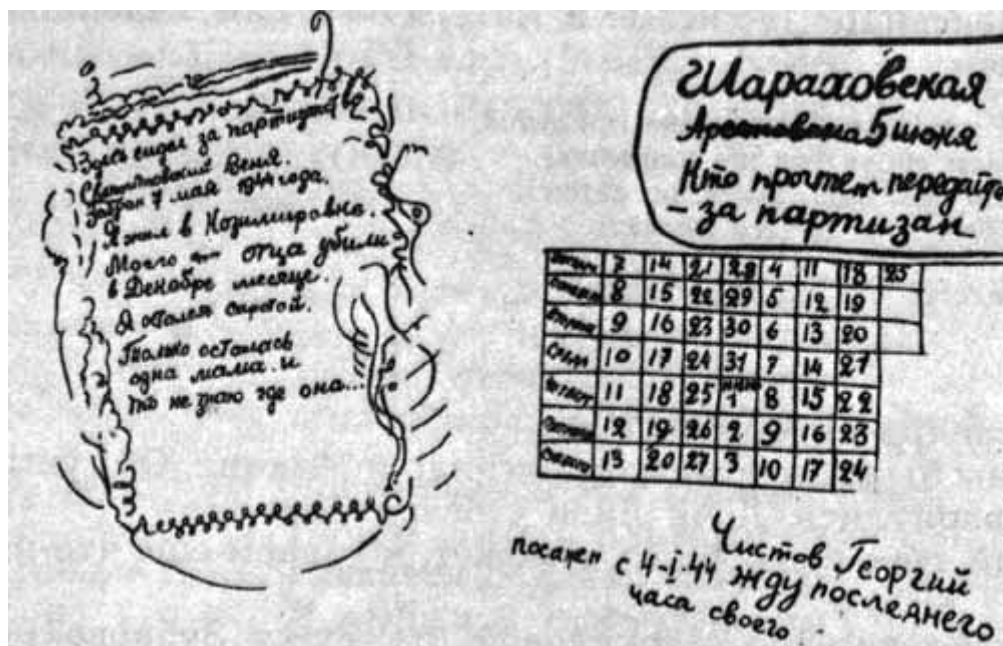 Здесь сидел за партизан
Веня.
забран 7 мая 1944 года.
Я жил в Козимировке.
Моего отца убили
в Декабре месяце.
Я остался сиротой.
Только осталась
одна мама. и
то не знаю где она...
Шараховская
Арестована 5 июня
Кто прочтет передайте
- за партизан
7 14 21 28 4 11 18 25
8 15 22 29 5 12 19
9 16 23 30 6 13 20
10 17 24 31 7 14 21
11 18 25 июнь 1 8 15 22
12 19 26 2 9 16 23
13 20 27 3 10 17 24
Чистов Георгий
посажен с 4-I-44 жду последнего
часа своего.